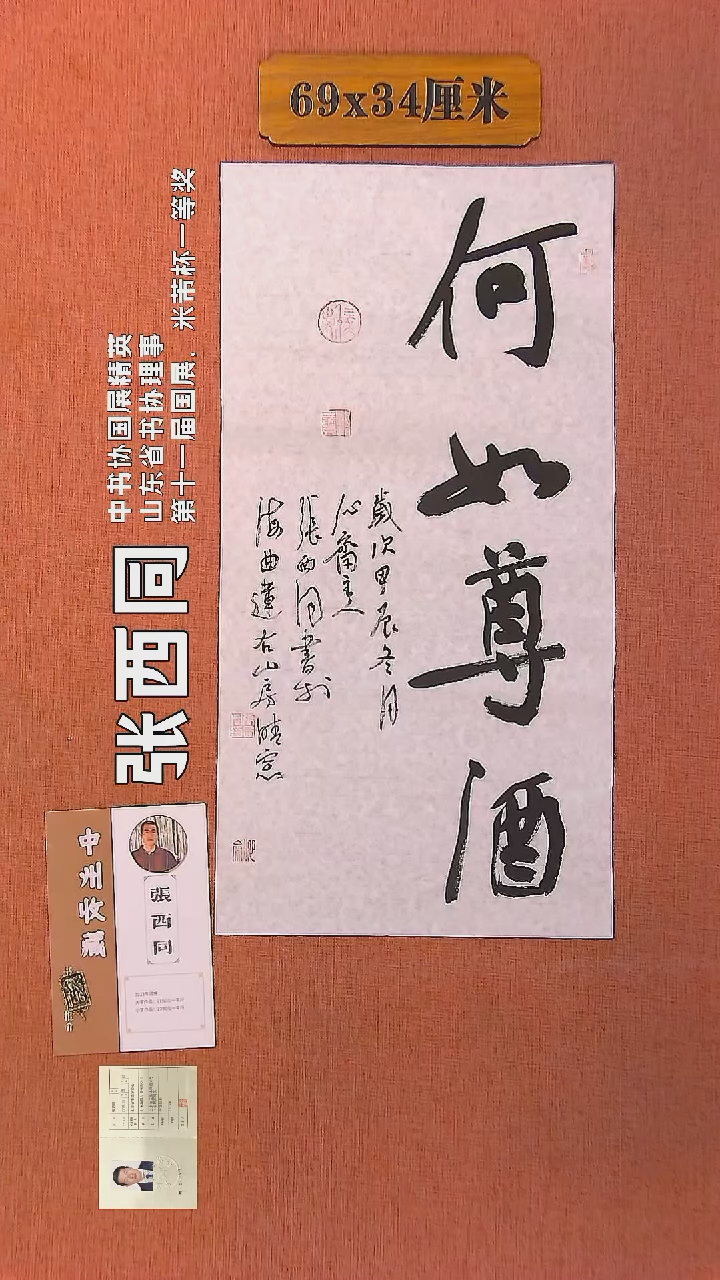 69x34厘米
何如尊酒
歲次甲辰冬月
心齋主人
張西同書於
海曲蓮右山房晴窓
中书协国展精英
山东省书协理事
第十一届国展、米芾杯一等奖
张西同
張西同